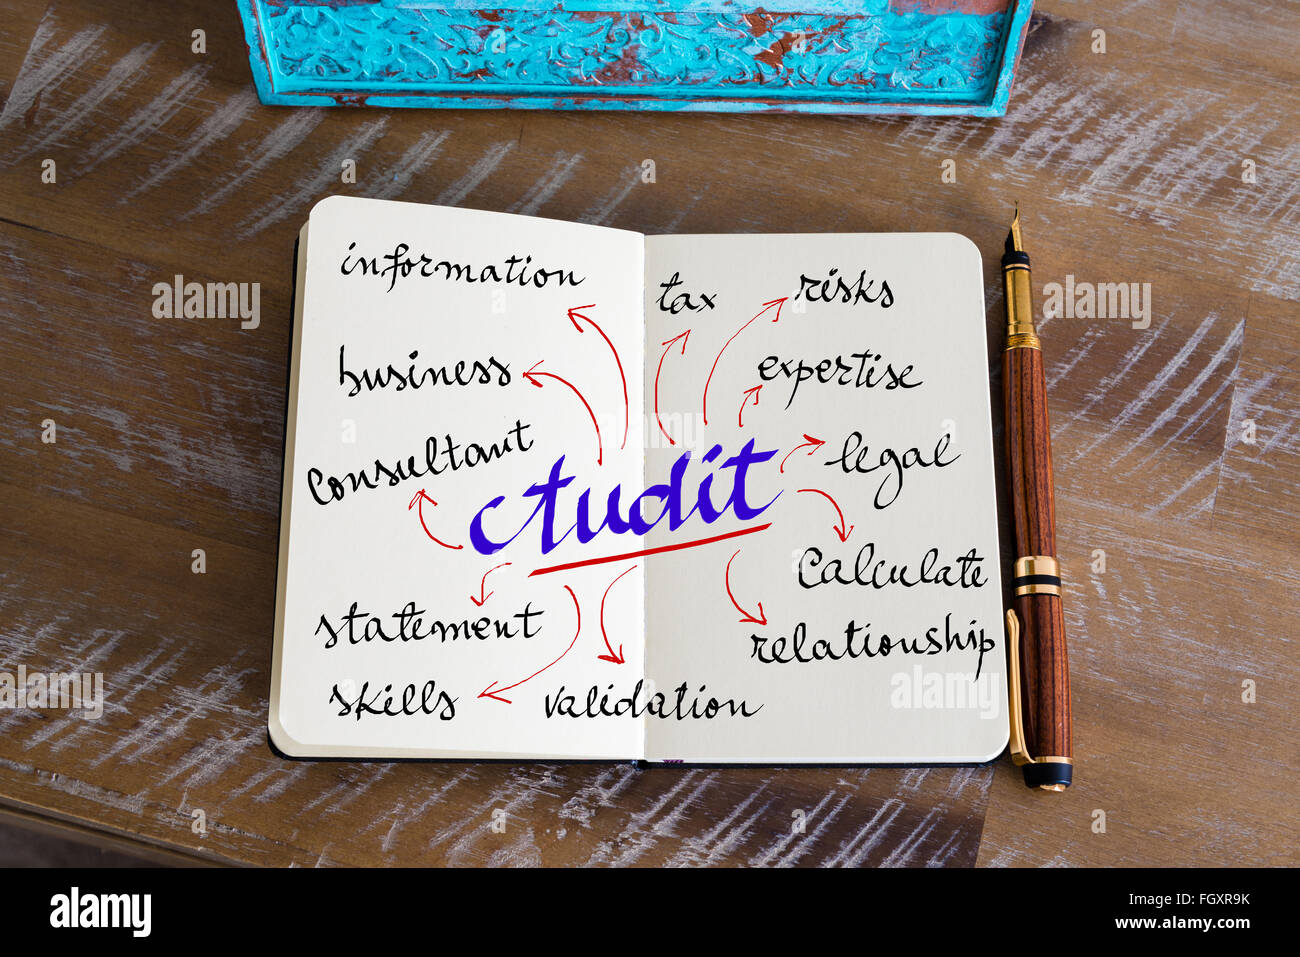 information
tax
risks
business
expertise
consultant
legal
Audit
calculate
statement
relationship
skills
validation
alamy
alamy
Image ID: FGXR9K
www.alamy.com